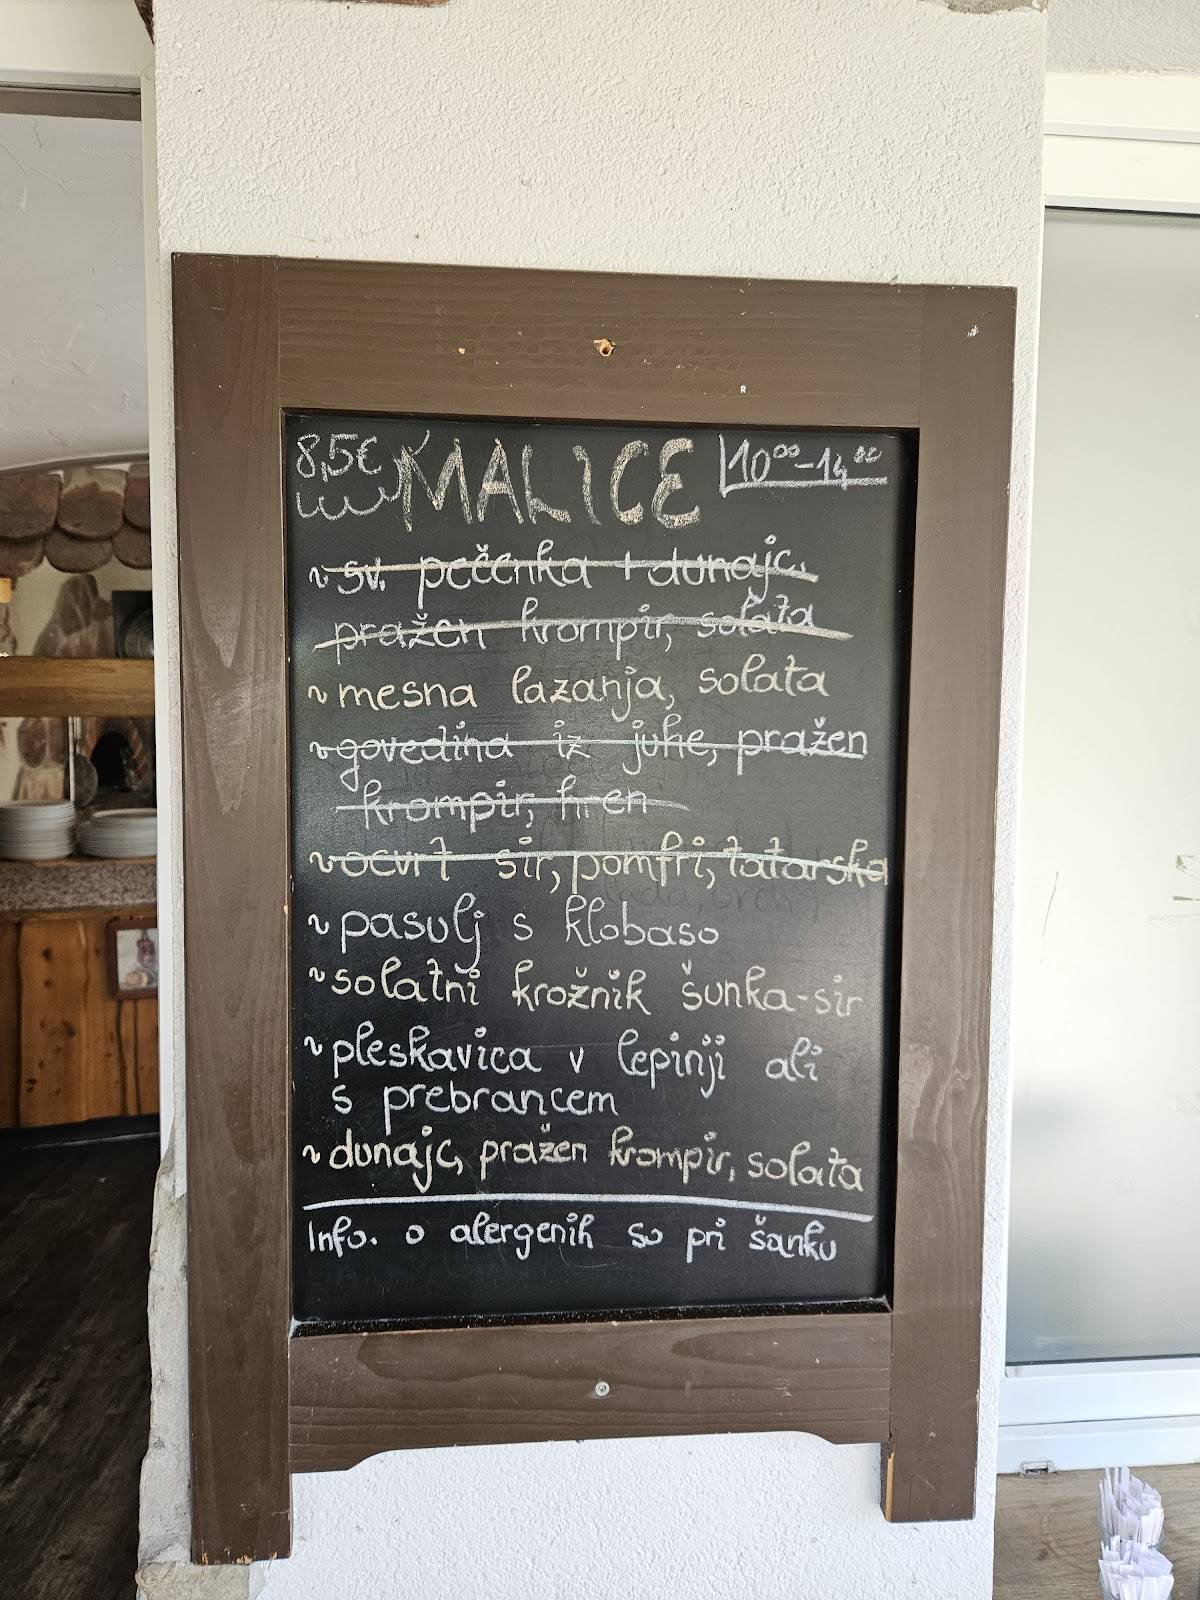 8,5€ MALICE 10⁰⁰-14⁰⁰
~ sv. pečenka + dunajc.
pražen krompir, solata
~ mesna lazanja, solata
~ govedina iz juhe, pražen
krompir, hren
~ ocvrt sir, pomfri, tatarska
~ pasulj s klobaso
~ solatni krožnik šunka-sir
~ pleskavica v lepinji ali
s prebrancem
~ dunajc, pražen krompir, solata
Info. o alergenih so pri šanku